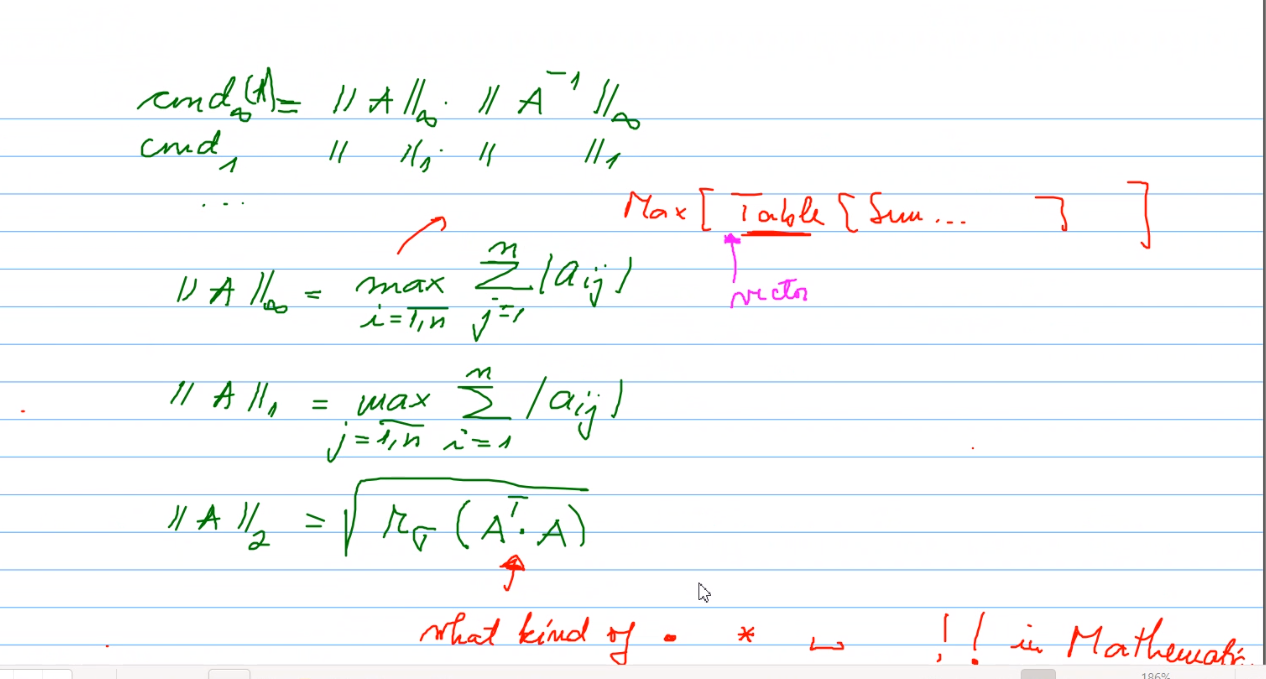 cond∞(A) = ||A||∞ · ||A⁻¹||∞
cond₁ || ||₁ · || ||₁
...
Max[ Table [ Sum ... ] ]
||A||∞ = max i=1,n Σ j=1 n |aij|
vector
||A||₁ = max j=1,n Σ i=1 n |aij|
||A||₂ = √ rσ (Aᵀ · A)
what kind of · * ⎵ !! in Mathematic
186%